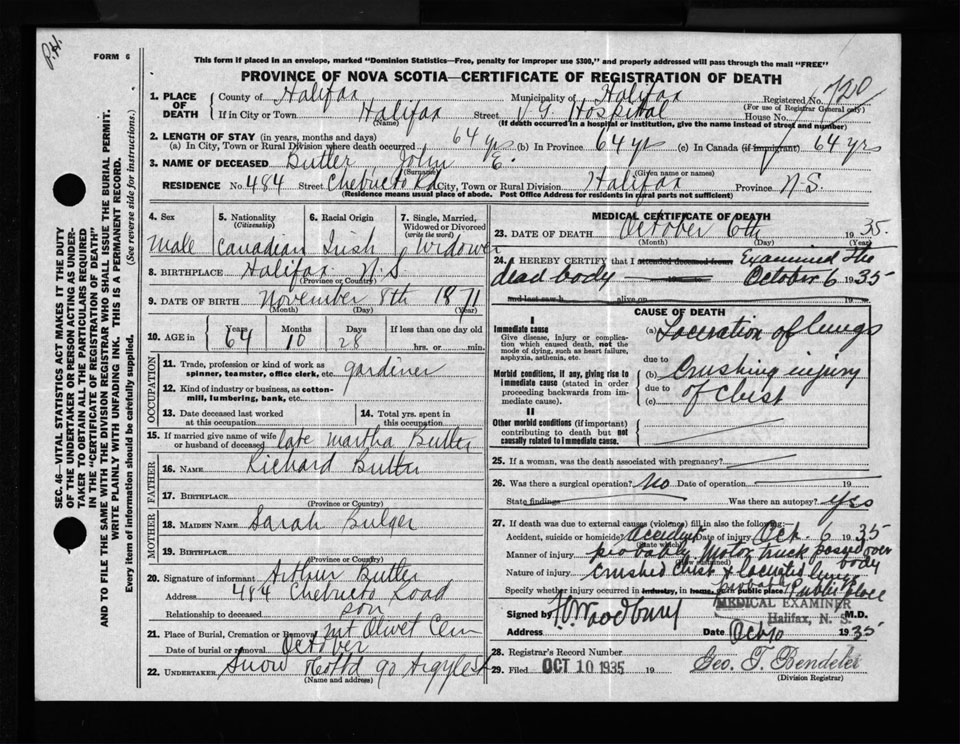 P.H.
FORM 6
This form if placed in an envelope, marked "Dominion Statistics—Free, penalty for improper use $300," and properly addressed will pass through the mail "FREE"
PROVINCE OF NOVA SCOTIA—CERTIFICATE OF REGISTRATION OF DEATH
1. PLACE OF DEATH
County of Halifax Municipality of Halifax Registered No. 720
(For use of Registrar General only)
If in City or Town Halifax Street V.G. Hospital House No.
(Name) (If death occurred in a hospital or institution, give the name instead of street and number)
2. LENGTH OF STAY (in years, months and days)
(a) In City, Town or Rural Division where death occurred 64 yrs (b) In Province 64 yrs (c) In Canada (if immigrant) 64 yrs
3. NAME OF DECEASED Butler John E.
(Surname) (Given name or names)
RESIDENCE No. 484 Street Chebucto Rd City, Town or Rural Division Halifax Province N.S.
(Residence means usual place of abode. Post Office Address for residents in rural parts not sufficient)
4. Sex Male
5. Nationality (Citizenship) Canadian
6. Racial Origin Irish
7. Single, Married, Widowed or Divorced (write the word) Widower
8. BIRTHPLACE Halifax N.S.
(Province or Country)
9. DATE OF BIRTH November 8th 1871
(Month) (Day) (Yr)
10. AGE in Years 64 Months 10 Days 28 If less than one day old hrs. or min.
OCCUPATION
11. Trade, profession or kind of work as spinner, teamster, office clerk, etc. gardiner
12. Kind of industry or business, as cotton-mill, lumbering, bank, etc.
13. Date deceased last worked at this occupation
14. Total yrs. spent in this occupation
15. If married give name of wife or husband of deceased late Martha Butler
FATHER
16. NAME Richard Butler
17. BIRTHPLACE
(Province or Country)
MOTHER
18. MAIDEN NAME Sarah Bulger
19. BIRTHPLACE
(Province or Country)
20. Signature of informant Arthur Butler
Address 484 Chebucto Road
Relationship to deceased son
21. Place of Burial, Cremation or Removal Mt Olivet Cem
Date of burial or removal October 19
22. UNDERTAKER Snow Co Ltd 90 Argyle St
(Name and address)
MEDICAL CERTIFICATE OF DEATH
23. DATE OF DEATH October 6th 1935
(Month) (Day) (Year)
24. I HEREBY CERTIFY that I attended deceased from Examined the
dead body 19 October 6 1935
and last saw h alive on 19
CAUSE OF DEATH
I
Immediate cause
Give disease, injury or complication which caused death, not the mode of dying, such as heart failure, asphyxia, asthenia, etc.
(a) Laceration of lungs
due to
Morbid conditions, if any, giving rise to immediate cause (stated in order proceeding backwards from immediate cause).
(b) Crushing injury
due to
(c) of Chist
II
Other morbid conditions (if important) contributing to death but not causally related to immediate cause.
25. If a woman, was the death associated with pregnancy?
26. Was there a surgical operation? No Date of operation 19
State findings Was there an autopsy? yes
27. If death was due to external causes (violence) fill in also the following:
Accident, suicide or homicide? Accident Date of injury Oct. 6 1935
(State which)
Manner of injury probably Motor truck passed over body
(How sustained)
Nature of injury Crushed Chist & Lacerated lungs
Specify whether injury occurred in industry, in home, or in public place probably Public place
Signed by F.V. Woodbury M.D.
MEDICAL EXAMINER
Halifax, N. S.
Address Date Oct 10 1935
28. Registrar's Record Number
29. Filed OCT 10 1935 19 Geo. T. Bendeler
(Division Registrar)
SEC. 46—VITAL STATISTICS ACT MAKES IT THE DUTY
OF THE UNDERTAKER OR PERSON ACTING AS UNDERTAKER
TO OBTAIN ALL THE PARTICULARS REQUIRED
IN THE "CERTIFICATE OF REGISTRATION OF DEATH"
AND TO FILE THE SAME WITH THE DIVISION REGISTRAR WHO SHALL ISSUE THE BURIAL PERMIT.
WRITE PLAINLY WITH UNFADING INK. THIS IS A PERMANENT RECORD.
Every item of information should be carefully supplied. (See reverse side for instructions.)